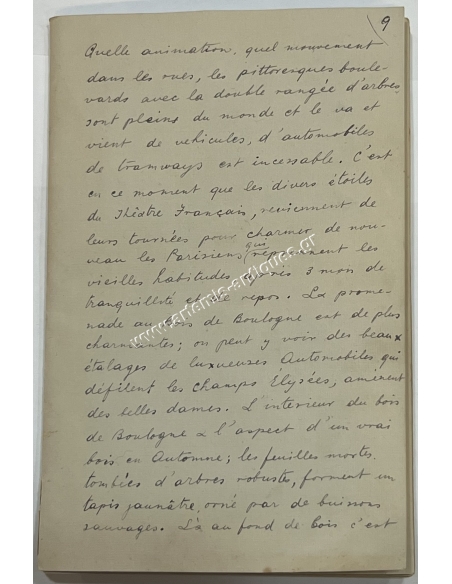 9
Quelle animation, quel mouvement
dans les rues, les pittoresques boule-
vards avec la double rangée d'arbres,
sont pleins du monde et le va et
vient de vehicules, d'automobiles
de tramways est incessable. C'est
en ce moment que les divers étoiles
du Théatre Français, reviennent de
leurs tournées pour charmer de nou-
veau les Parisiens qui reprennent les
vieilles habitudes après 3 mois de
tranquillité et de repos. La prome-
nade au bois de Boulogne est de plus
charmantes; on peut y voir des beaux
étalages de luxueuses Automobiles qui
défilent les Champs Élysées, amènent
des belles dames. L'interieur du bois
de Boulogne a l'aspect d'un vrai
bois en Automne; les feuilles mortes
tombées d'arbres robustes, forment un
tapis jaunâtre, orné par de buissons
sauvages. Là au fond de bois c'est
www.artemis-antiques.gr